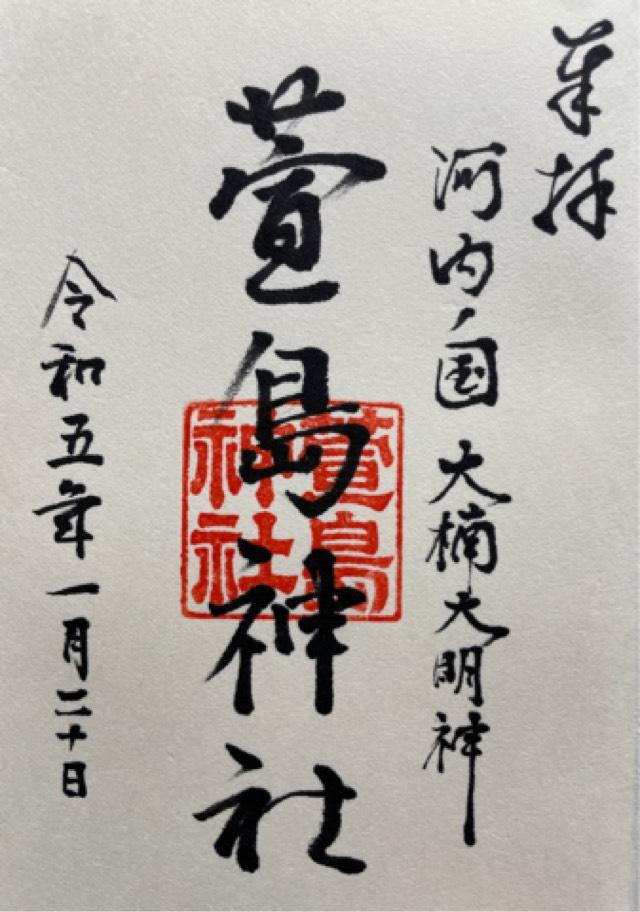 奉拝
河内ノ国 大楠大明神
萱島神社
萱島
神社
令和五年一月二十日